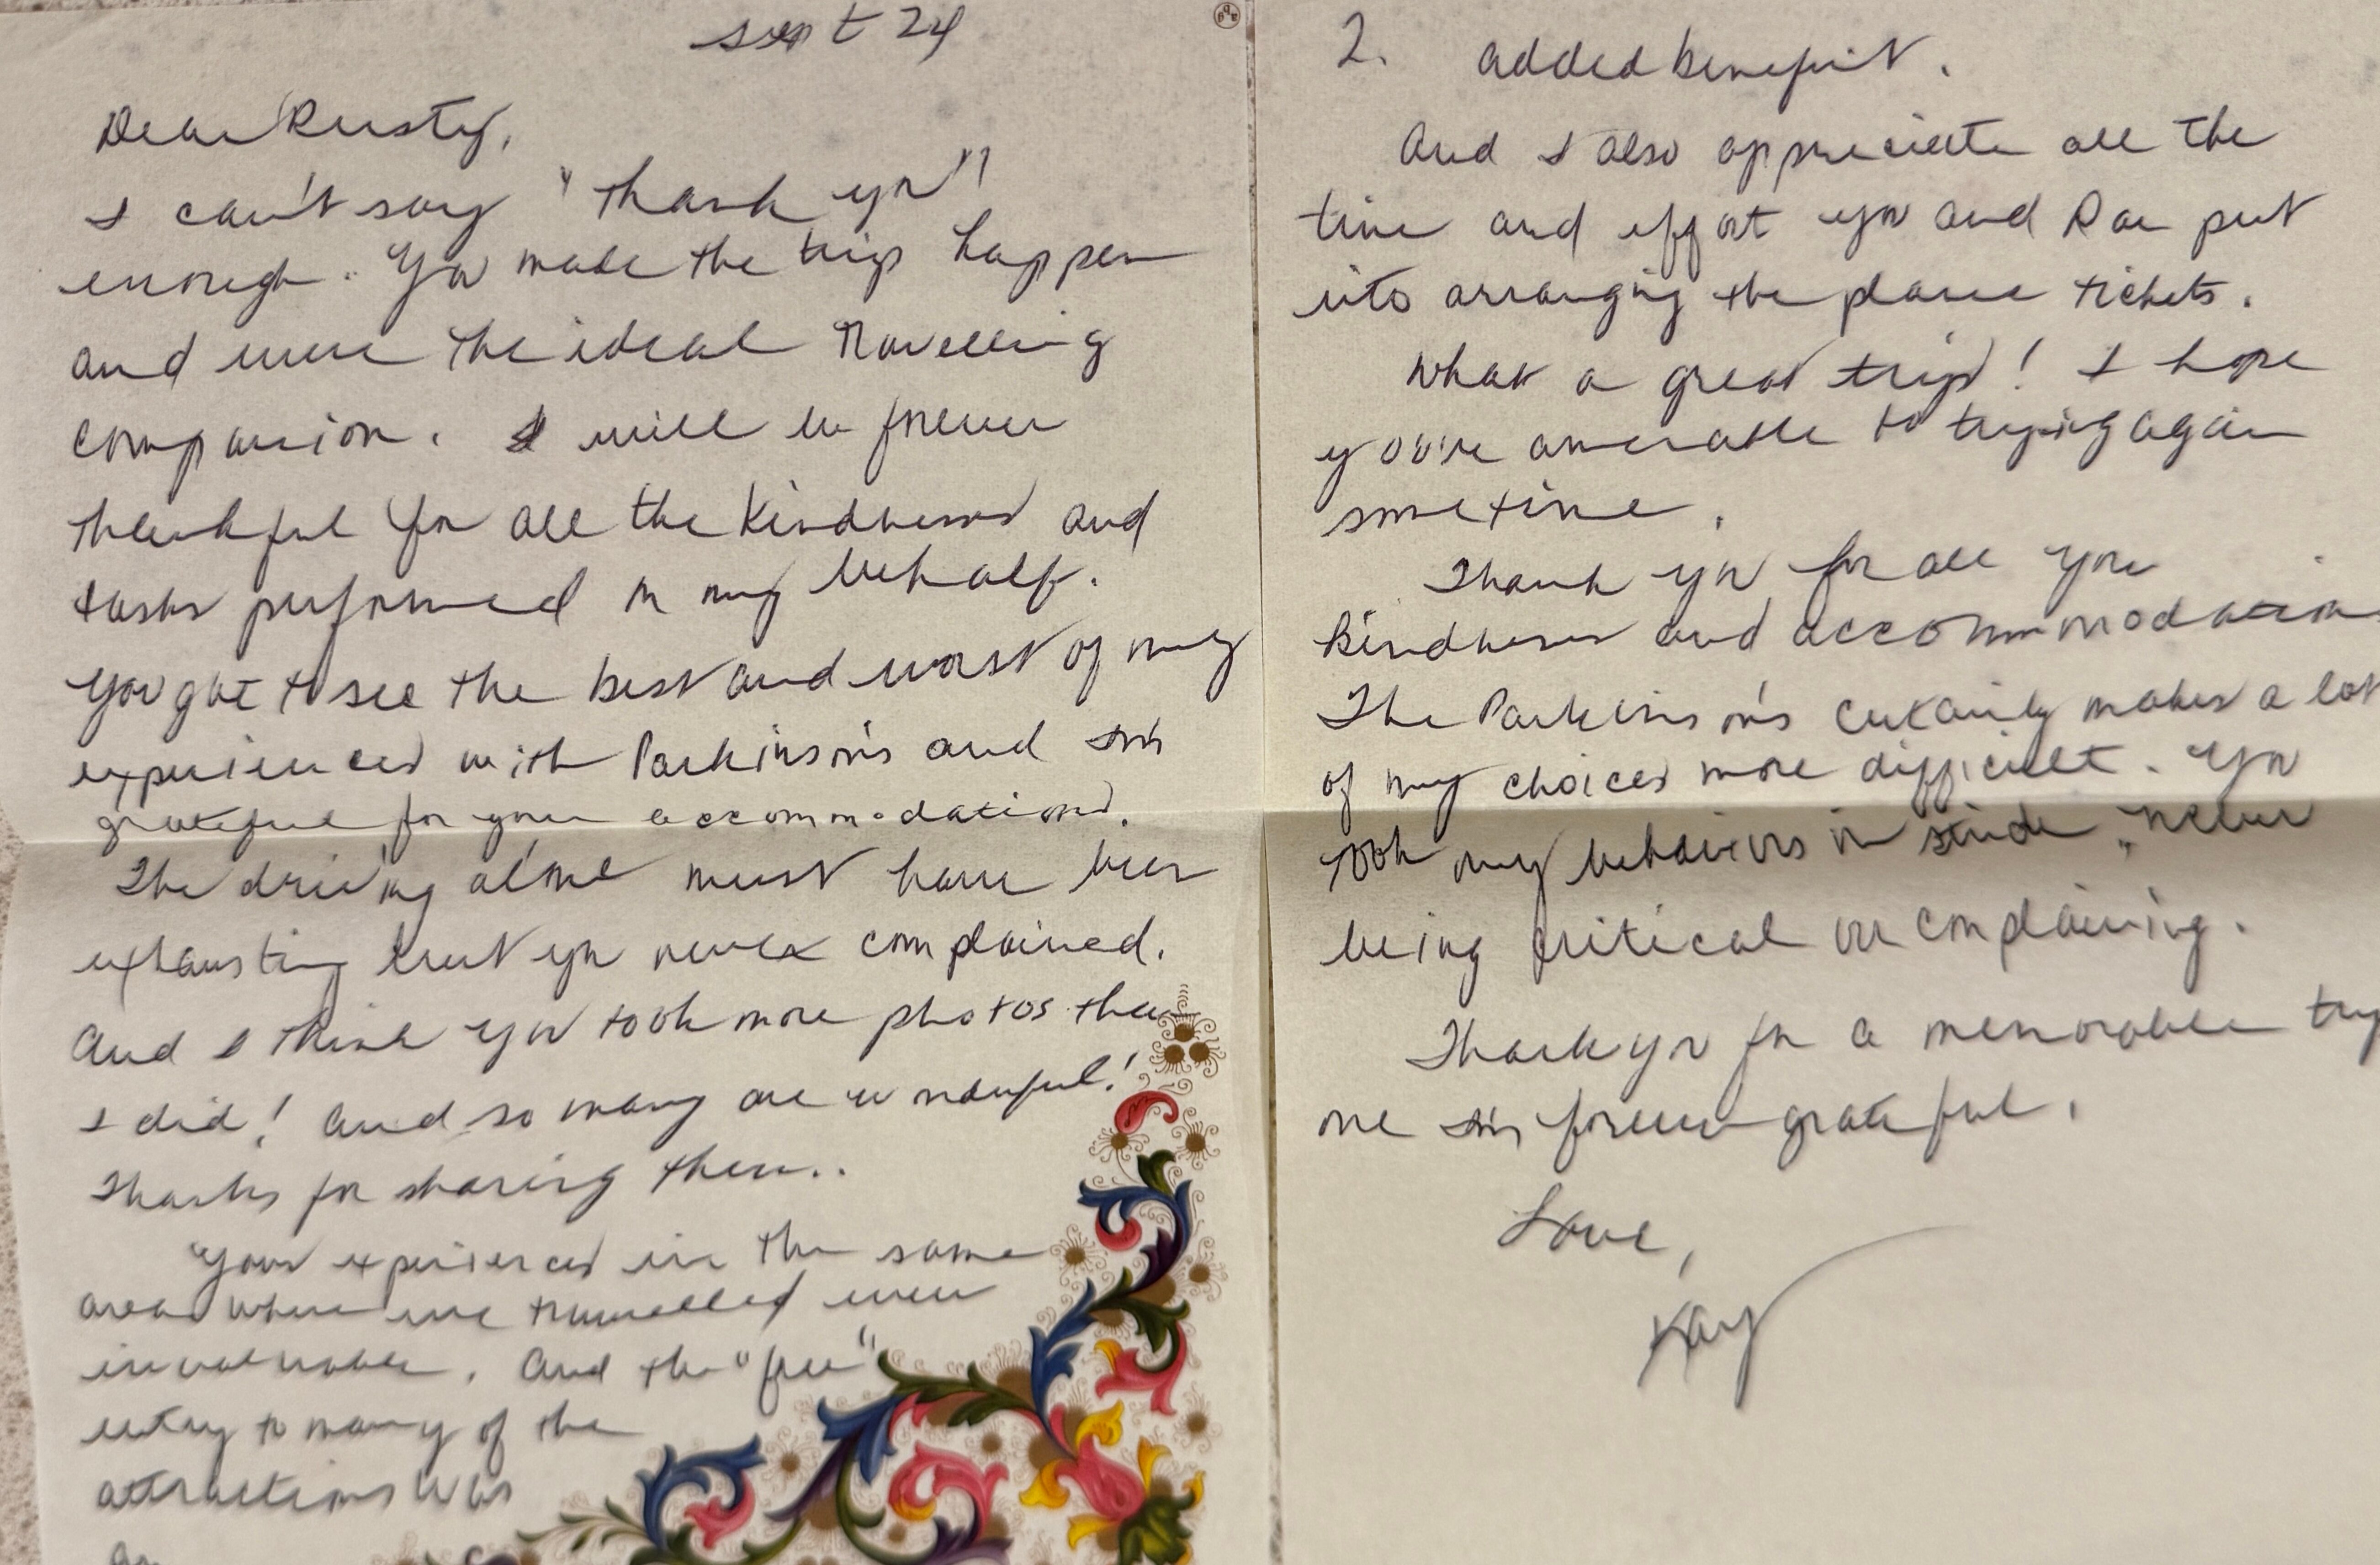 Sept 24
Dear Rusty,
I can't say "thank you"
enough. You made the trip happen
and were the ideal travelling
companion. I will be forever
thankful for all the kindnesses and
tasks performed on my behalf.
You got to see the best and worst of my
experiences with Parkinson's and I'm
grateful for your accommodations.
The driving alone must have been
exhausting but you never complained.
And I think you took more photos than
I did! And so many are wonderful!
Thanks for sharing them..
Your experiences in the same
areas where we travelled were
invaluable. And the "free"
entry to many of the
attractions was
an
2. added benefit.
And I also appreciate all the
time and effort you and Rae put
into arranging the plane tickets.
What a great trip! I hope
you're amenable to trying again
sometime.
Thank you for all your
kindnesses and accommodations
The Parkinson's certainly makes a lot
of my choices more difficult. You
took my behaviors in stride, never
being critical or complaining.
Thank you for a memorable trip
one I'm forever grateful.
Love,
Kay